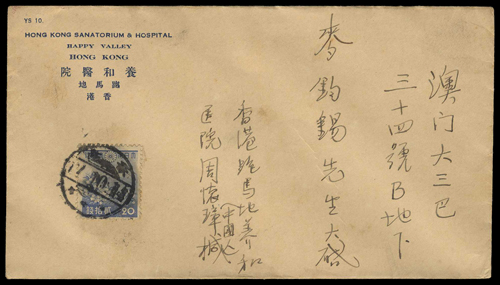 YS 10.
HONG KONG SANATORIUM & HOSPITAL
HAPPY VALLEY
HONG KONG
院醫和養
地馬跑
港香
澳门大三巴
三十四號B地下
麥鈞錫先生大啓
香港跑馬地养和
医院周懷璋椷
(中國人)
錢拾貳 20